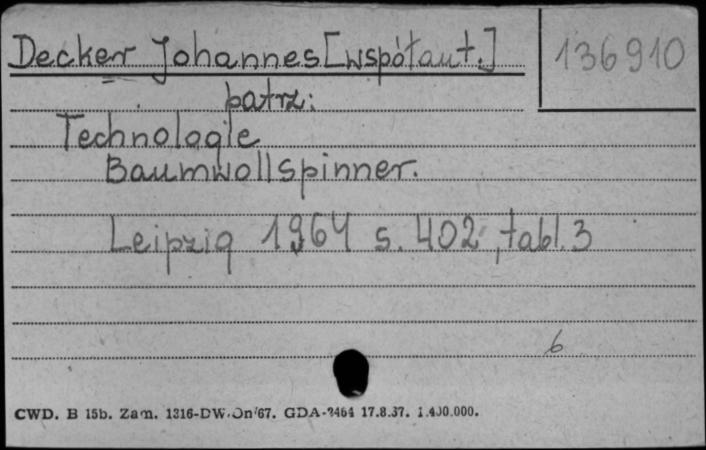 Decker Johannes [współaut.] 136910
patrz:
Technologie
Baumwollspinner.
Leipzig 1964 s. 402, tabl. 3
6
CWD. B 15b. Zam. 1316-DW/On/67. GDA- 17.8.67. 1.400.000.